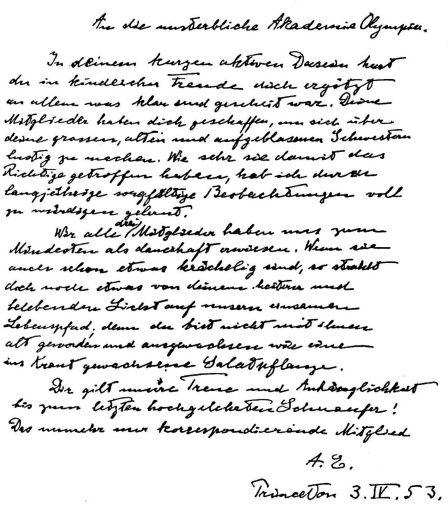 An die unsterbliche Akademie Olympia.
In deinem kurzen aktiven Dasein hast
du in kindlicher Freude dich ergötzt
an allem was klar und gescheit war. Deine
Mitglieder haben dich geschaffen, um sich über
deine grossen, alten und aufgeblasenen Schwestern
lustig zu machen. Wie sehr sie damit das
Richtige getroffen haben, hab ich durch
langjährige sorgfältige Beobachtungen voll
zu würdigen gelernt.
Wir alle drei Mitglieder haben uns zum
Mindesten als dauerhaft erwiesen. Wenn sie
auch schon etwas krächelig sind, so strahlt
doch noch etwas von deinem heitern und
belebenden Licht auf unsern einsamen
Lebenspfad; denn du bist nicht mit ihnen
alt geworden und ausgewachsen wie eine
ins Kraut gewachsene Salatpflanze.
Dir gilt unsere Treue und Anhänglichkeit
bis zum letzten hochgelehrten Schnaufer!
Das nunmehr nur korrespondierende Mitglied
A. E.
Princeton 3. IV. 53.